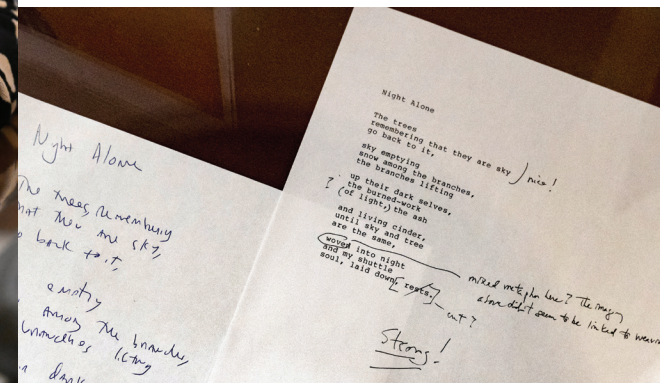 Night Alone
The trees remembering
that they are sky,
back to it,
empty
Among the branches,
branches lifting
dark
Night Alone
The trees
remembering that they are sky
go back to it,
nice!
sky emptying
snow among the branches,
the branches lifting
up their dark selves,
the burned-work
(of light,) the ash
?
and living cinder,
until sky and tree
are the same,
woven into night
and my shuttle
soul, laid down, rests.
mixed metaphor here? The imagery
above didn't seem to be linked to weaving
cut?
Strong!